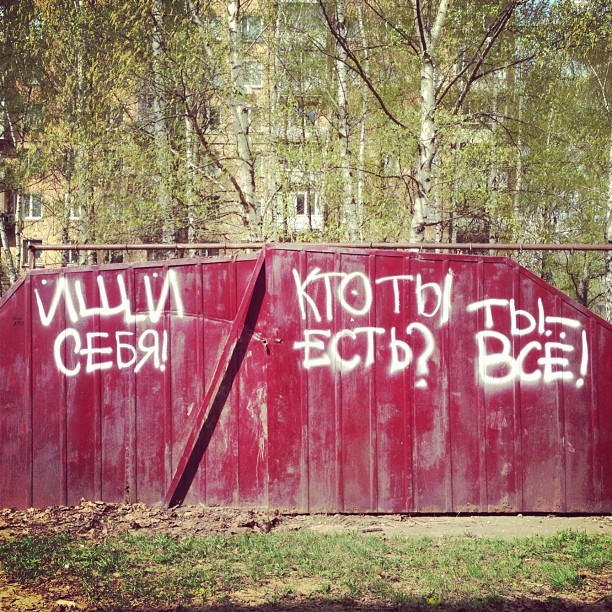 ИЩИ
СЕБЯ!
КТО ТЫ
ЕСТЬ?
ТЫ-
ВСЁ!